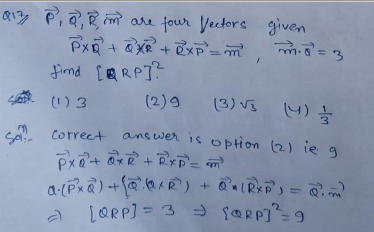 Q17) P⃗, Q⃗, R⃗, m⃗ are four Vectors given
P⃗×Q⃗ + Q⃗×R⃗ + R⃗×P⃗ = m⃗ , m⃗·Q⃗ = 3
find [QRP]²
(1) 3 (2) 9 (3) √3 (4) 1/3
Sol:- correct answer is option (2) ie 9
P⃗×Q⃗ + Q⃗×R⃗ + R⃗×P⃗ = m⃗
Q·(P⃗×Q⃗) + {Q⃗·(Q×R⃗) + Q⃗·(R⃗×P⃗) = Q⃗·m⃗
⇒ [QRP] = 3 ⇒ [QRP]² = 9